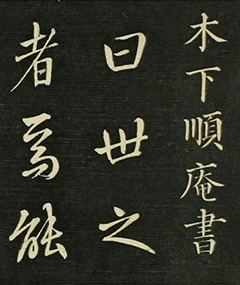 木下順庵書
曰世之
者為能